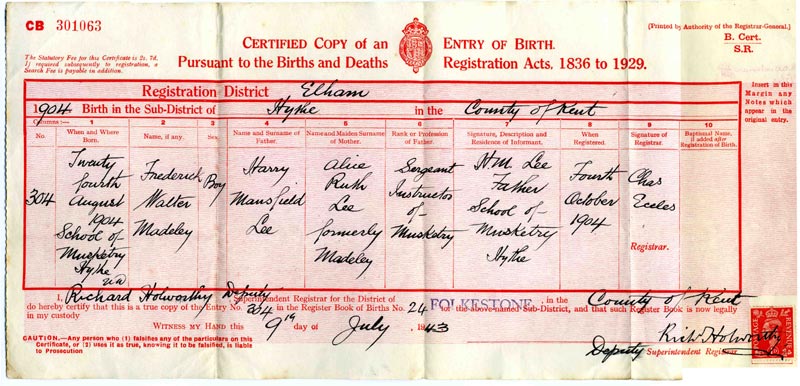 CB 301063
(Printed by Authority of the Registrar-General.)
B. Cert.
S.R.
CERTIFIED COPY of an ENTRY OF BIRTH.
Pursuant to the Births and Deaths Registration Acts, 1836 to 1929.
The Statutory Fee for this Certificate is 2s. 7d.
If required subsequently to registration, a
Search Fee is payable in addition.
Insert in this
Margin any
Notes which
appear in the
original entry.
Registration District Elham
1904 Birth in the Sub-District of Hythe in the County of Kent
Columns :— 1 2 3 4 5 6 7 8 9 10
No.
When and Where
Born.
Name, if any.
Sex.
Name and Surname of
Father.
Name and Maiden Surname
of Mother.
Rank or Profession
of Father.
Signature, Description and
Residence of Informant.
When
Registered.
Signature of
Registrar.
Baptismal Name,
if added after
Registration of Birth.
304
Twenty
fourth
August
1904
School of
Musketry
Hythe
Frederick
Walter
Madeley
Boy
Harry
Mansfield
Lee
Alice
Ruth
Lee
formerly
Madeley
Sergeant
Instructor
of
Musketry
H.M. Lee
Father
School of
Musketry
Hythe
Fourth
October
1904
Chas
Eccles
Registrar.
I, Richard Holworthy Deputy Superintendent Registrar for the District of FOLKESTONE, in the County of Kent
do hereby certify that this is a true copy of the Entry No. 304 in the Register Book of Births No. 24 for the above-named Sub-District, and that such Register Book is now legally
in my custody
WITNESS MY HAND this 9th day of July 1943
CAUTION.—Any person who (1) falsifies any of the particulars on this
Certificate, or (2) uses it as true, knowing it to be falsified, is liable
to Prosecution
Richd Holworthy
Deputy Superintendent Registrar
REVENUE